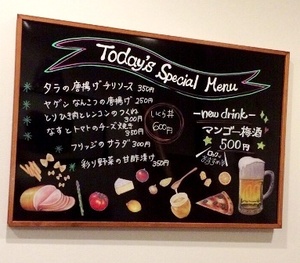 Today's Special Menu
タラの唐揚げチリソース 350円
ヤゲンなんこつの唐揚げ 250円
とりひき肉とレンコンのつくね
300円
なすとトマトのチーズ焼き
350円
フリッジのサラダ 300円
彩り野菜の甘酢漬け 350円
いくら丼
600円
-new drink-
マンゴー梅酒
500円
おすすめ